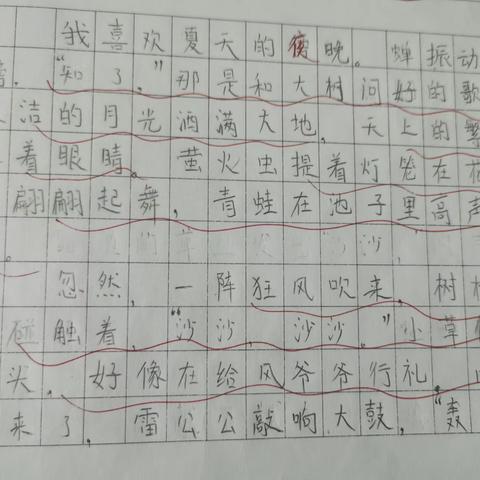 我喜欢夏天的夜晚。蝉振动
“知了。”那是和大树问好的歌
洁的月光洒满大地，天上的繁
着眼睛。萤火虫提着灯笼在花
翩翩起舞，青蛙在池子里高声
忽然，一阵狂风吹来，树枝
碰触着，“沙沙，沙沙。”小草
头，好像在给风爷爷行礼。
来了，雷公公敲响大鼓，“轰